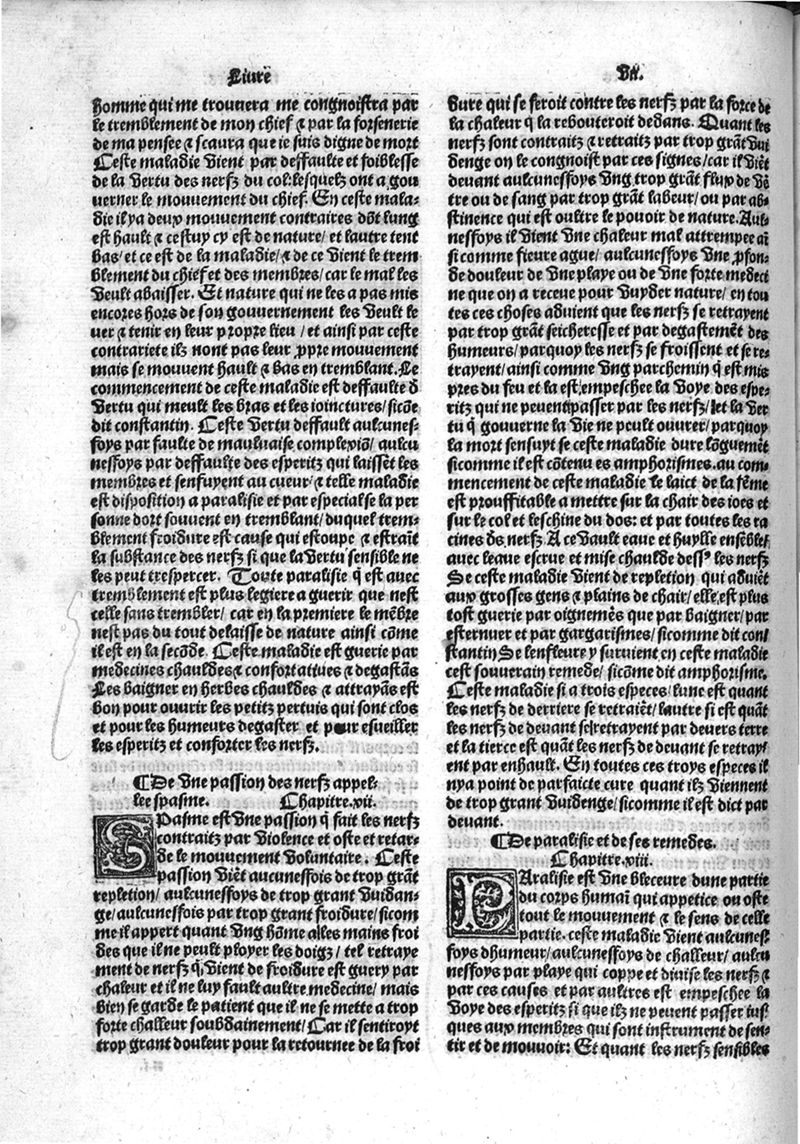 Liure
Vii.
homme qui me trouuera me congnoistra par
le tremblement de mon chief & par la forsenerie
de ma pensee & scaura que ie suis digne de mort
Ceste maladie vient par deffaulte et foiblesse
de la vertu des nerfz du col: lesquelz ont a gou
uerner le mouuement du chief. En ceste mala-
die il ya deux mouuement contraires dōt lung
est hault & cestuy cy est de nature/ et lautre tent
bas/ et ce est de la maladie/ & de ce vient le trem
blement du chief et des membres/ car le mal les
veult abaisser. Et nature qui ne les a pas mis
encores hors de son gouuernement les veult le
uer & tenir en leur propre lieu/ et ainsi par ceste
contrariete ilz nont pas leur ꝓpre mouuement
mais se mouuent hault & bas en tremblant. Le
commencement de ceste maladie est deffaulte d̄
vertu qui meult les bras et les ioinctures/ sicōe
dit constantin. Ceste vertu deffault aulcunes-
foys par faulte de mauluaise complexiō/ aulcu
nessoys par deffaulte des esperitz qui laissēt les
membres et senfuyent au cueur/ & telle maladie
est disposition a paralisie et par especial se la per
sonne dort souuent en tremblant/ duquel trem-
blement froidure est cause qui estoupe & estraīt
la substance des nerfz si que la vertu sensible ne
les peut trespercer. Toute paralisie q̄ est auec
tremblement est plus legiere a guerir que nest
celle sans trembler/ car en la premiere le mēbre
nest pas du tout delaisse de nature ainsi cōme
il est en la secōde. Ceste maladie est guerie par
medecines chauldes & confortatiues & degastās
Les baigner en herbes chauldes & attrayās est
bon pour ouurir les petitz pertuis qui sont clos
et pour les humeurs degaster et pour esueiller
les esperitz et conforter les nerfz.
¶De vne passion des nerfz appel-
lee spasme. Chapitre.xii.
SPasme est vne passion q̄ fait les nerfz
contraitz par violence et oste et retar-
de le mouuement voluntaire. Ceste
passion viēt aucunessois de trop grāt
repletion/ aulcunessoys de trop grant vuidan-
ge/ aulcunessois par trop grant froidure/ sicom
me il appert quant vng hōme a les mains froi
des que il ne peult ployer les doigz/ tel retraye
ment de nerfz q̄ vient de froidure est guery par
chaleur et il ne luy fault aultre medecine/ mais
bien se garde le patient que il ne se mette a trop
forte challeur soubdainement/ Car il sentiroyt
trop grant douleur pour la retournee de la froi
dure qui se feroit contre les nerfz par la force de
la chaleur q̄ la rebouteroit dedans. Quant les
nerfz sont contraitz & retraitz par trop grāt vui
denge on le congnoist par ces signes/ car il viēt
deuant aulcunessoys vng trop grāt flux de vē
tre ou de sang par trop grāt labeur/ ou par ab-
stinence qui est oultre le pouoir de nature. Aul-
nessoys il vient vne chaleur mal attrempee aī
si comme fieure ague/ aulcunessoys vne ꝓfon-
de douleur de vne playe ou de vne forte medeci
ne que on a receue pour vuyder nature/ en tou
tes ces choses aduient que les nerfz se retrayent
par trop grāt seicheresse et par degastemēt des
humeurs/ parquoy les nerfz se froissent et se re-
trayent/ ainsi comme vng parchemin q̄ est mis
pres du feu et la est empeschee la voye des espe-
ritz qui ne peuent passer par les nerfz/ et la ver
tu q̄ gouuerne la vie ne peult ouurer/ parquoy
la mort sensuyt se ceste maladie dure lōguemēt
sicomme il est cōtenu es amphorismes. au com-
mencement de ceste maladie le laict de la fēme
est prouffitable a mettre sur la chair des ioes et
sur le col et leschine du dos: et par toutes les ra
cines d̄s nerfz A ce vault eaue et huylle ensēble/
auec leaue escrue et mise chaulde dess⁹ les nerfz
Se ceste maladie vient de repletion qui aduiēt
aux grosses gens & plains de chair/ elle est plus
tost guerie par oignemēs que par baigner/ par
esternuer et par gargarismes/ sicomme dit con/
stantin Se lenfleure y suruient en ceste maladie
cest souuerain remede/ sicōme dit amphorisme.
Ceste maladie si a trois especes/ lune est quant
les nerfz de derriere se retraiēt/ lautre si est quāt
les nerfz de deuant se retrayent par deuers terre
et la tierce est quāt les nerfz de deuant se retray/
ent par enhault. En toutes ces troys especes il
nya point de parfaicte cure quant ilz viennent
de trop grant vuidenge/ sicomme il est dict par
deuant.
¶De paralisie et de ses remedes.
Chapitre.xiii.
PAralisie est vne bleceure dune partie
du corps humaī qui appetice ou oste
tout le mouuement & le sens de celle
partie. ceste maladie vient aulcunes-
foys dhumeur/ aulcunessoys de challeur/ aulcu
nessoys par playe qui coppe et diuise les nerfz &
par ces causes et par aultres est empeschee la
voye des esperitz si que ilz ne peuent passer ius/
ques aux membres qui sont instrument de sen-
tir et de mouuoir: Et quant les nerfz sensibles